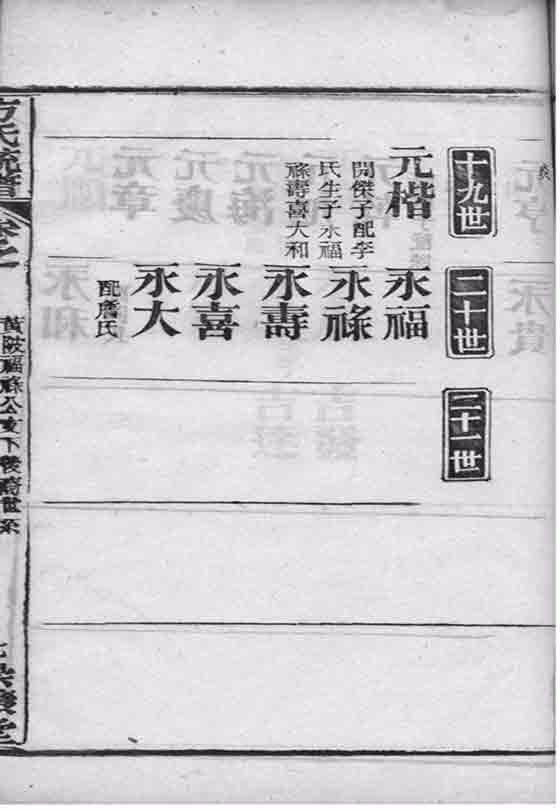 十九世
元楷
開傑子配李
氏生子永福
祿壽喜大和
二十世
永福
永祿
永壽
永喜
永大
配詹氏
二十一世
方氏統譜
卷之一
黃陂福祿公支下後裔世系